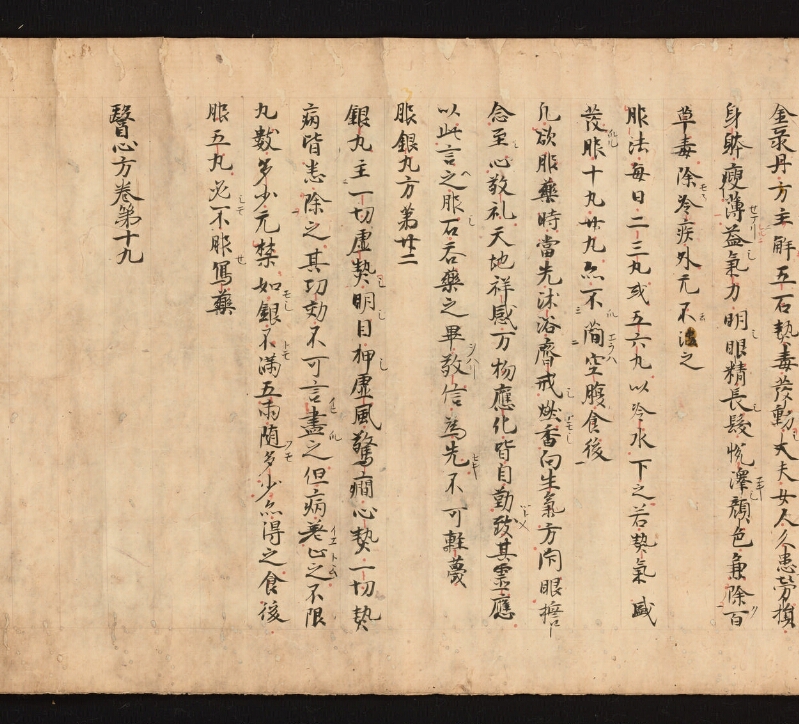 金汞丹方主解五石熱毒發動丈夫女人久患勞損
身體瘦薄益氣力明眼精長髮悦澤顔色兼除百
草毒除冷疾外无不治之
服法每日二三丸或五六丸以冷水下之若熱氣盛
發服十九廿丸亦不簡空腹食後
凡欲服藥時當先沐浴齊戒燒香向生氣方閇眼
念至心敬礼天地祥感万物應化皆自勤致其霊應
以此言之服石吞藥之畢敬信為先不可輕蔑
服銀丸方第廿二
銀丸主一切虚熱明目柙虚風驚癇心熱一切熱
病皆悉除之其功効不可言盡之但病差止之不限
丸數多少无禁如銀不満五兩随多少亦得之食後
服五丸必不服寫藥
醫心方卷第十九